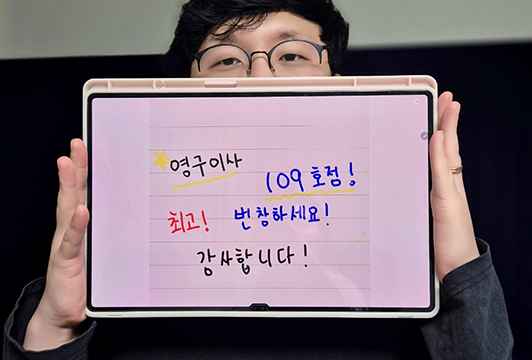 영구이사
109호점!
최고! 번창하세요!
감사합니다!